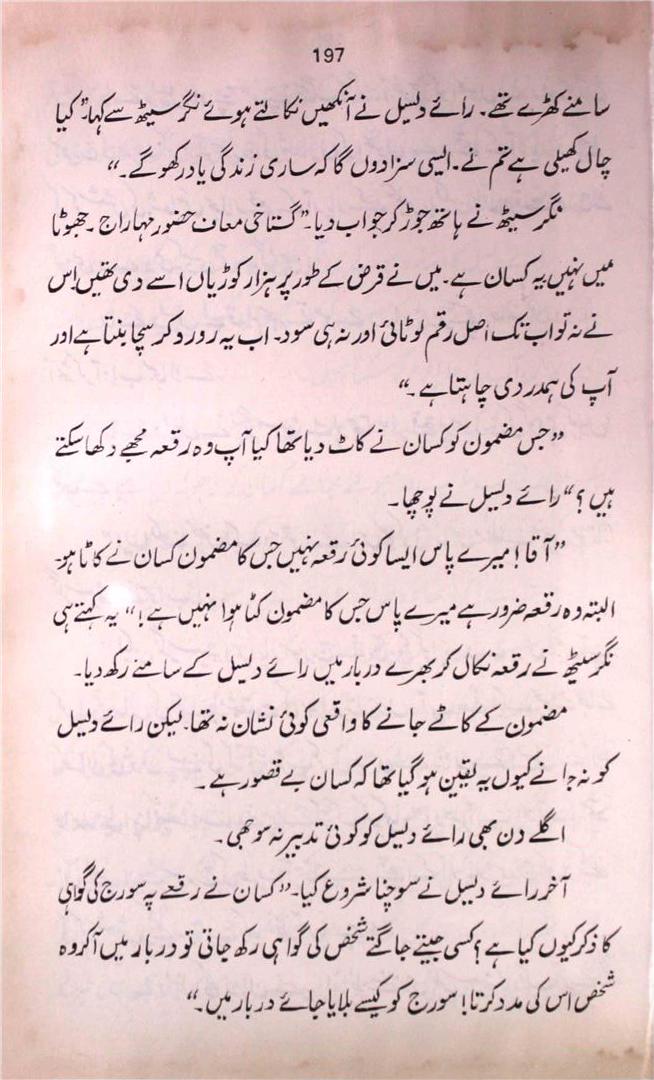 197
سامنے کھڑے تھے۔ رائے دلیل نے آنکھیں نکالتے ہوئے نگر سیٹھ سے کہا۔” کیا
چال کھیلی ہے تم نے۔ ایسی سزا دوں گا کہ ساری زندگی یاد رکھو گے۔“
نگر سیٹھ نے ہاتھ جوڑ کر جواب دیا۔” گستاخی معاف حضور مہاراج۔ جھوٹا
میں نہیں یہ کسان ہے۔ میں نے قرض کے طور پر ہزار کوڑیاں اسے دی تھیں۔ اس
نے نہ تو اب تک اصل رقم لوٹائی اور نہ ہی سود۔ اب یہ رو رو کر سچا بنتا ہے اور
آپ کی ہمدردی چاہتا ہے۔“
”جس مضمون کو کسان نے کاٹ دیا تھا کیا آپ وہ رقعہ مجھے دکھا سکتے
ہیں؟“ رائے دلیل نے پوچھا۔
”آقا! میرے پاس ایسا کوئی رقعہ نہیں جس کا مضمون کسان نے کاٹا ہو۔
البتہ وہ رقعہ ضرور ہے میرے پاس جس کا مضمون کٹا ہوا نہیں ہے!“ یہ کہتے ہی
نگر سیٹھ نے رقعہ نکال کر بھرے دربار میں رائے دلیل کے سامنے رکھ دیا۔
مضمون کے کاٹے جانے کا واقعی کوئی نشان نہ تھا۔ لیکن رائے دلیل
کو نہ جانے کیوں یہ یقین ہو گیا تھا کہ کسان بے قصور ہے۔
اگلے دن بھی رائے دلیل کو کوئی تدبیر نہ سوجھی۔
آخر رائے دلیل نے سوچنا شروع کیا۔ ”کسان نے رقعے پہ سورج کی گواہی
کا ذکر کیوں کیا ہے؟ کسی جیتے جاگتے شخص کی گواہی رکھ جاتی تو دربار میں آ کر وہ
شخص اس کی مدد کرتا! سورج کو کیسے بلایا جائے دربار میں۔“